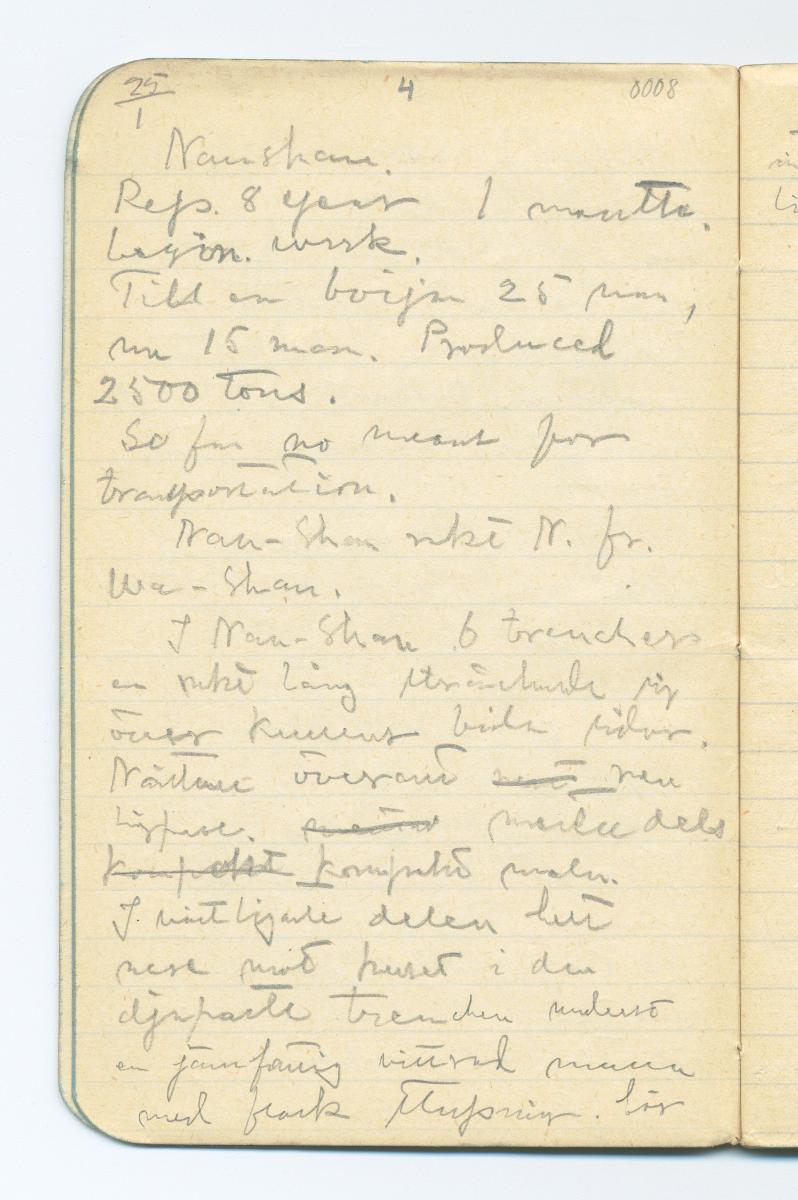 25/1 4 0008
Nanshan.
Reps. 8 year 1 month.
begin. work.
Till en början 25 man,
nu 15 man. Produced
2500 tons.
So far no means for
transportation.
Nan-Shan rakt N. fr.
Wa-Shan.
I Nan-Shan 6 trenches
en rakt lång sträckande sig
över krönets båda sidor.
Nästan överallt ren
kompakt malm.
I västligaste delen helt
nere mot huset i den
djupaste trenchen underst
en jämförlig vittrad massa
med flack stupning. bör